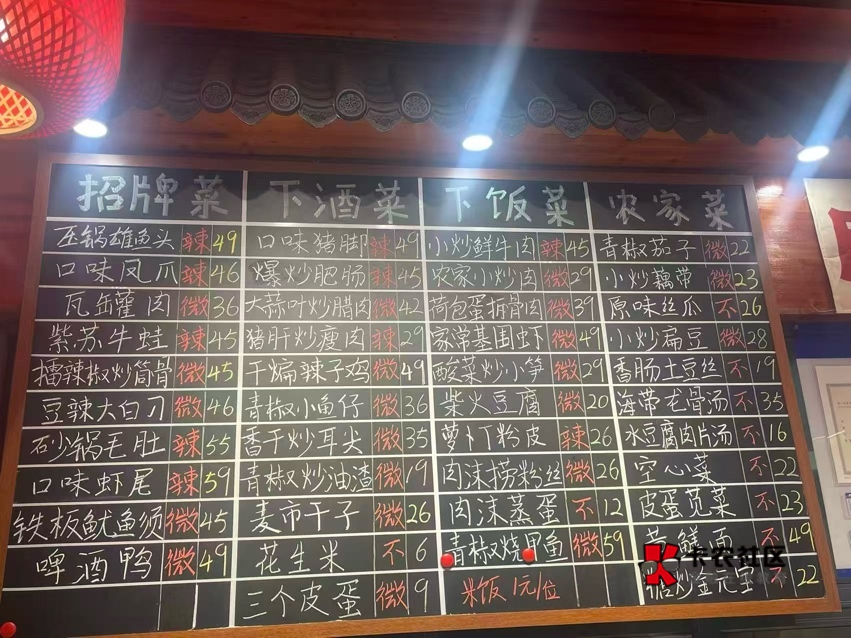 招牌菜 下酒菜 下饭菜 农家菜
压锅雄鱼头 辣 49 口味猪脚 辣 49 小炒鲜牛肉 辣 45 青椒茄子 微 22
口味凤爪 辣 46 爆炒肥肠 辣 45 农家小炒肉 微 29 小炒藕带 微 23
瓦缶灌肉 微 36 大蒜叶炒腊肉 微 42 荷包蛋拆骨肉 微 39 原味丝瓜 不 26
紫苏牛蛙 辣 45 猪肝炒瘦肉 辣 29 家常基围虾 微 49 小炒扁豆 微 28
擂辣椒炒筒骨 微 45 干煸辣子鸡 微 49 酸菜炒小笋 微 29 香肠土豆丝 不 19
豆辣大白刁 微 46 青椒小鱼仔 微 36 柴火豆腐 微 20 海带龙骨汤 不 35
石少锅毛肚 辣 55 香干炒耳尖 微 35 萝卜丁粉皮 辣 26 水豆腐肉片汤 不 16
口味虾尾 辣 59 青椒炒油渣 微 19 肉沫捞粉丝 微 26 空心菜 不 22
铁板鱿鱼须 微 45 麦市干子 微 26 肉沫蒸蛋 不 12 皮蛋苋菜 不 23
啤酒鸭 微 49 花生米 不 6 青椒烧甲鱼 微 59 鲜面 不 49
三个皮蛋 微 9 米饭1元/位 炒金元宝 不 22
卡农社区